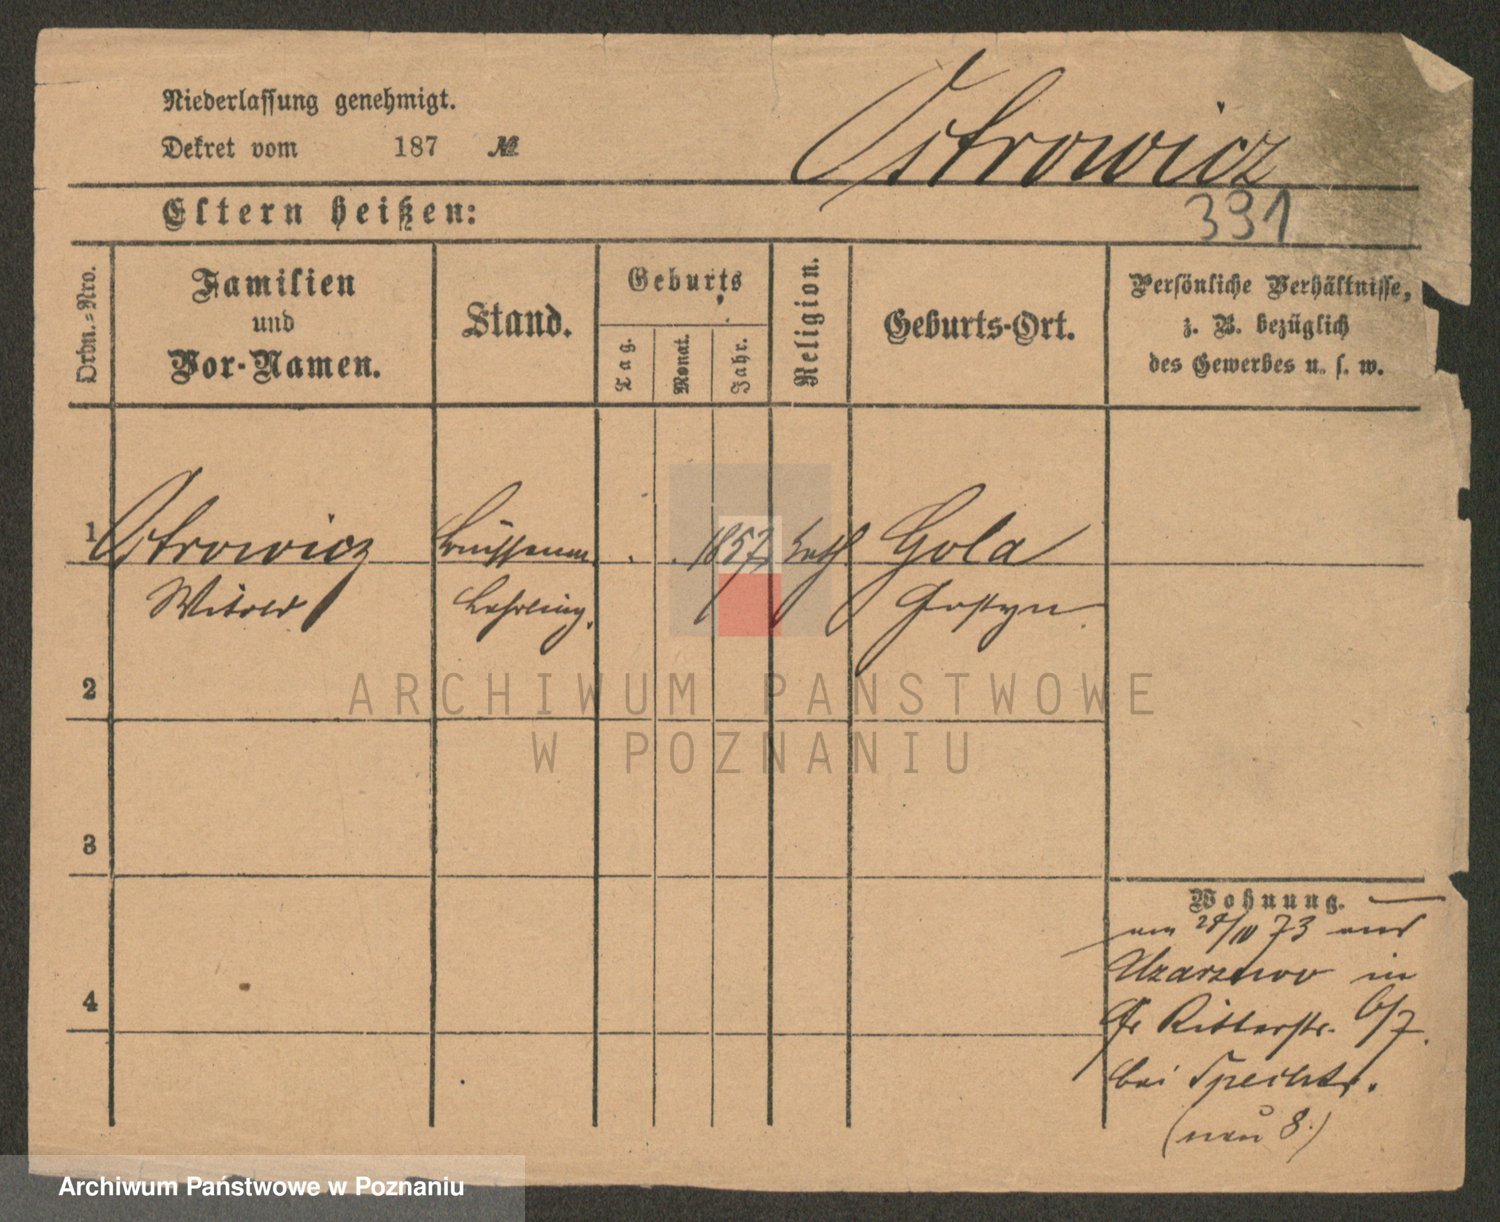 Niederlassung genehmigt.
Dekret vom 187 №
Ostrowicz
Eltern heißen:
391
Ordn.-Nro.
Familien
und
Vor-Namen.
Stand.
Geburts
Tag.
Monat.
Jahr.
Religion.
Geburts-Ort.
Persönliche Verhältnisse,
z. B. bezüglich
des Gewerbes u. s. w.
1
Ostrowicz
Witold
Lehrling.
1857
kath
Gola
Gostyn
2
3
4
Wohnung.
73
in
Gr Ritterstr. 6/7.
bei Specht.
(neu 8.)
ARCHIWUM PAŃSTWOWE
W POZNANIU
Archiwum Państwowe w Poznaniu